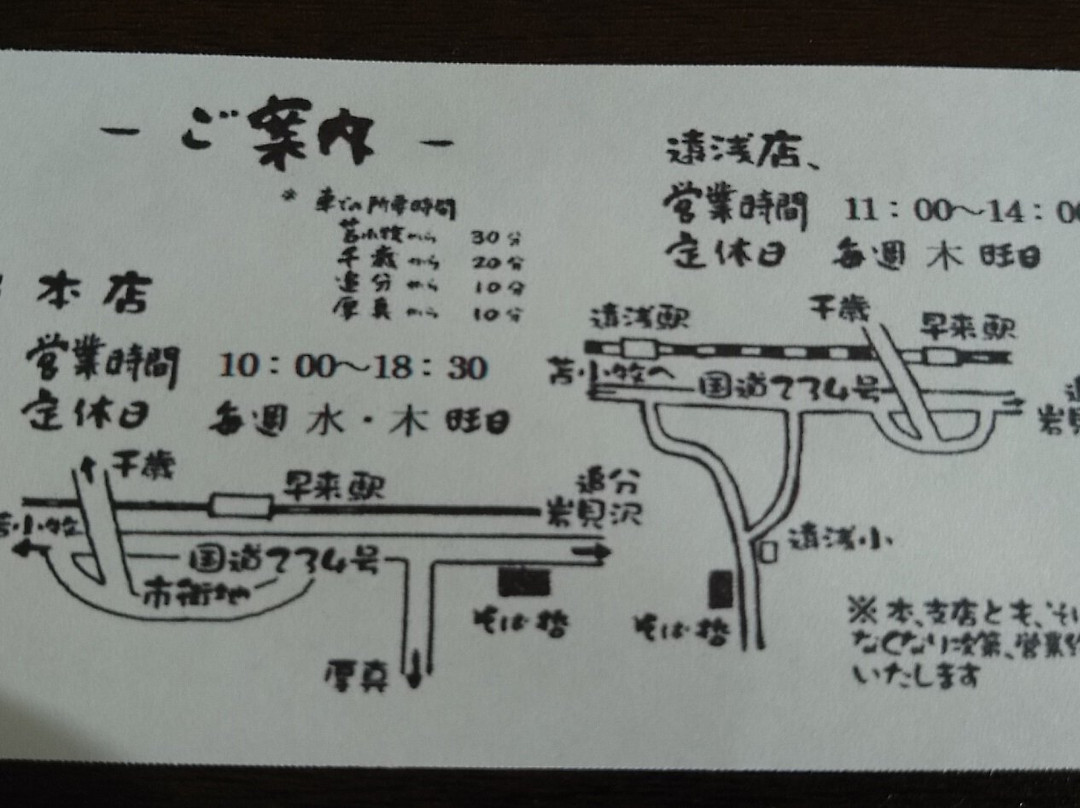 - ご案内 -
* 車での所要時間
苫小牧から 30分
千歳から 20分
追分から 10分
厚真から 10分
本店
営業時間 10：00〜18：30
定休日 毎週 水・木 旺日
千歳
早来駅
追分
岩見沢
苫小牧
国道234号
市街地
そば哲
厚真
遠浅店、
営業時間 11：00〜14：00
定休日 毎週 木 旺日
千歳
遠浅駅
早来駅
苫小牧へ
国道234号
遠浅小
そば哲
※ 本、支店とも、そば
なくなり次第、営業終
いたします